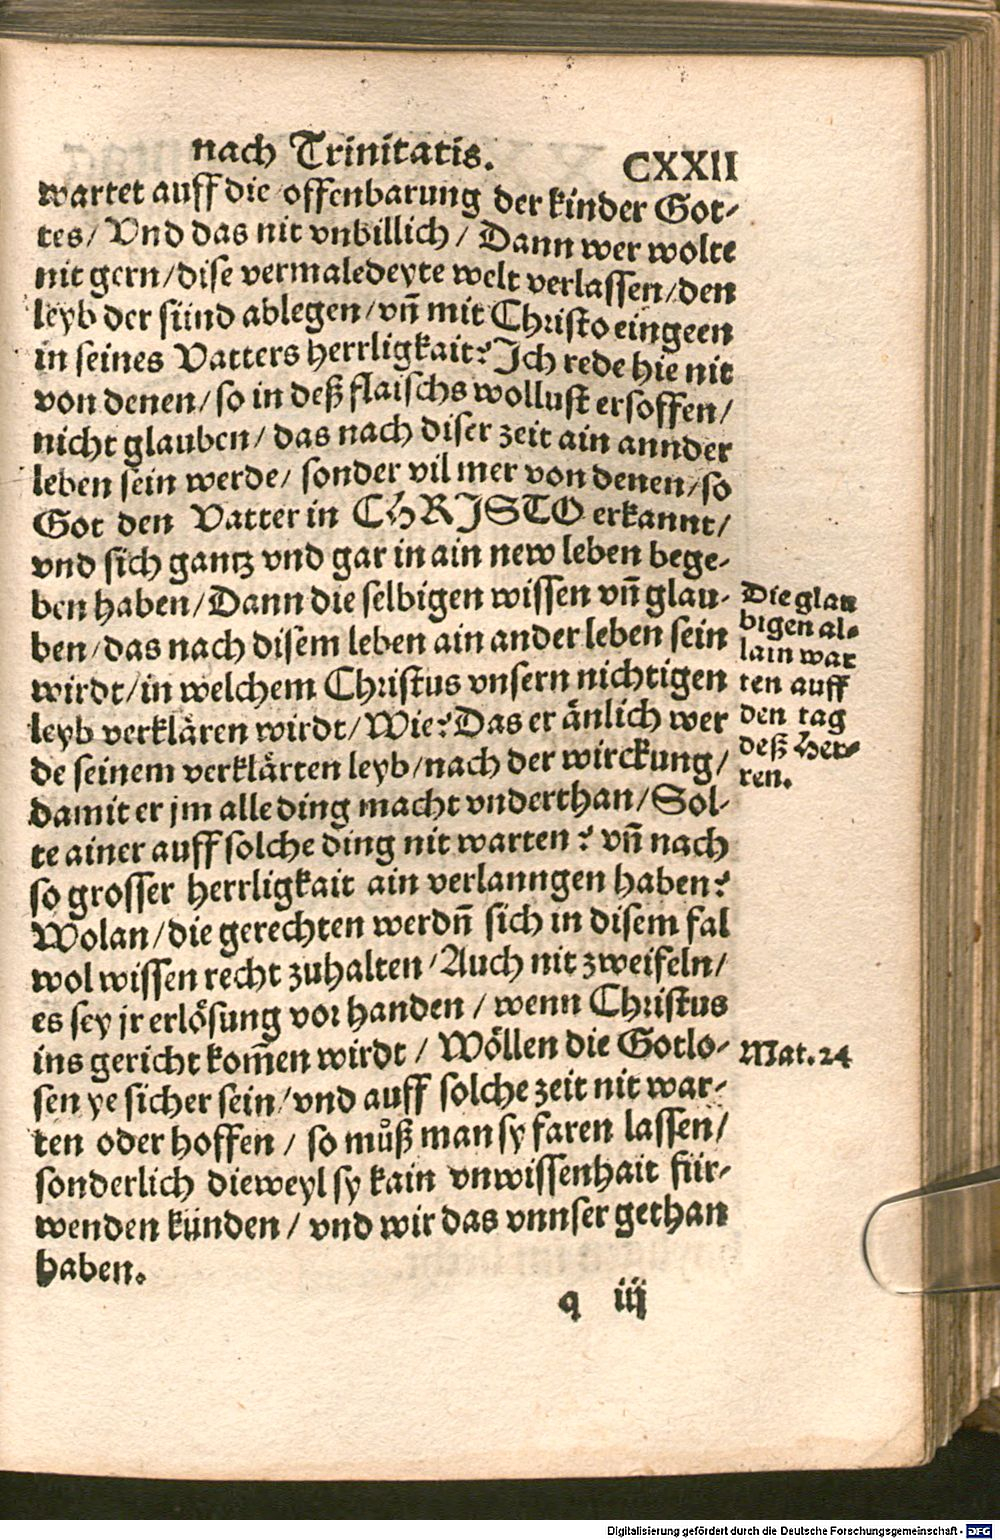 nach Trinitatis. CXXII
wartet auff die offenbarung der kinder Got-
tes/ Vnd das nit vnbillich/ Dann wer wolte
nit gern/dise vermaledeyte welt verlassen/den
leyb der sünd ablegen/vñ mit Christo eingeen
in seines Vatters herrligkait? Ich rede hie nit
von denen/so in deß flaischs wollust ersoffen/
nicht glauben/ das nach diser zeit ain annder
leben sein werde/ sonder vil mer von denen/so
Got den Vatter in CHRISTO erkannt/
vnd sich gantz vnd gar in ain new leben bege-
ben haben/Dann die selbigen wissen vñ glau-
ben/das nach disem leben ain ander leben sein
wirdt/in welchem Christus vnsern nichtigen
leyb verklären wirdt/Wie? Das er änlich wer
de seinem verklärten leyb/nach der wirckung/
damit er jm alle ding macht vnderthan/Sol-
te ainer auff solche ding nit warten? vñ nach
so grosser herrligkait ain verlanngen haben?
Wolan/die gerechten werdñ sich in disem fal
wol wissen recht zuhalten/Auch nit zweifeln/
es sey jr erlösung vor handen/wenn Christus
ins gericht kom̃en wirdt/ Wöllen die Gotlo-
sen ye sicher sein/vnd auff solche zeit nit war-
ten oder hoffen/ so můß man sy faren lassen/
sonderlich dieweyl sy kain vnwissenhait für-
wenden künden/ vnd wir das vnnser gethan
haben.
Die glau
bigen al-
lain war
ten auff
den tag
deß Her-
ren.
Mat. 24
q iij
Digitalisierung gefördert durch die Deutsche Forschungsgemeinschaft - DFG